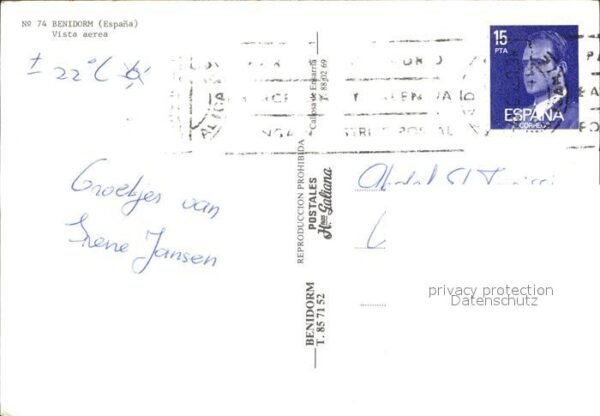 Nº 74 BENIDORM (España)
Vista aerea
± 22°C
Groetjes van
Irene Jansen
BENIDORM
T. 85 71 52
POSTALES
Hnos Galiana
REPRODUCCION PROHIBIDA
Callosa de Ensarriá
T. 88 02 69
15
PTA
ESPAÑA
CORREOS
POSTAL
privacy protection
Datenschutz